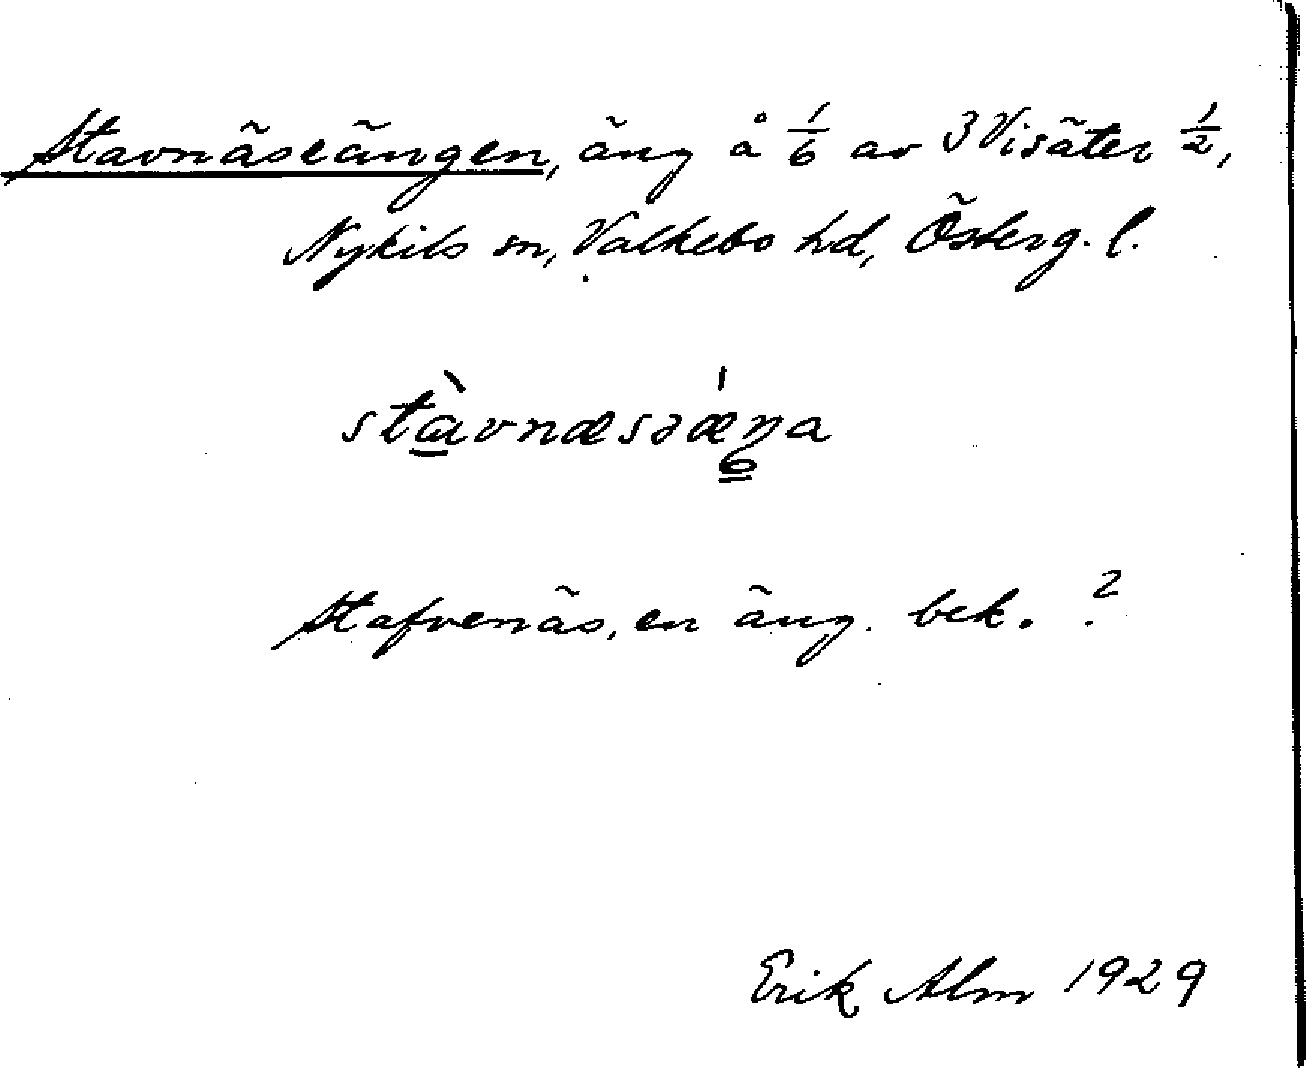 Stavnäseängen, äng å 1/6 av 3 Visäter 1/2,
Nykils sn, Valkebo hd, Österg. l.
stàvnæsəǽŋa
Stafvenäs, en äng. bek. ?
Erik Alm 1929